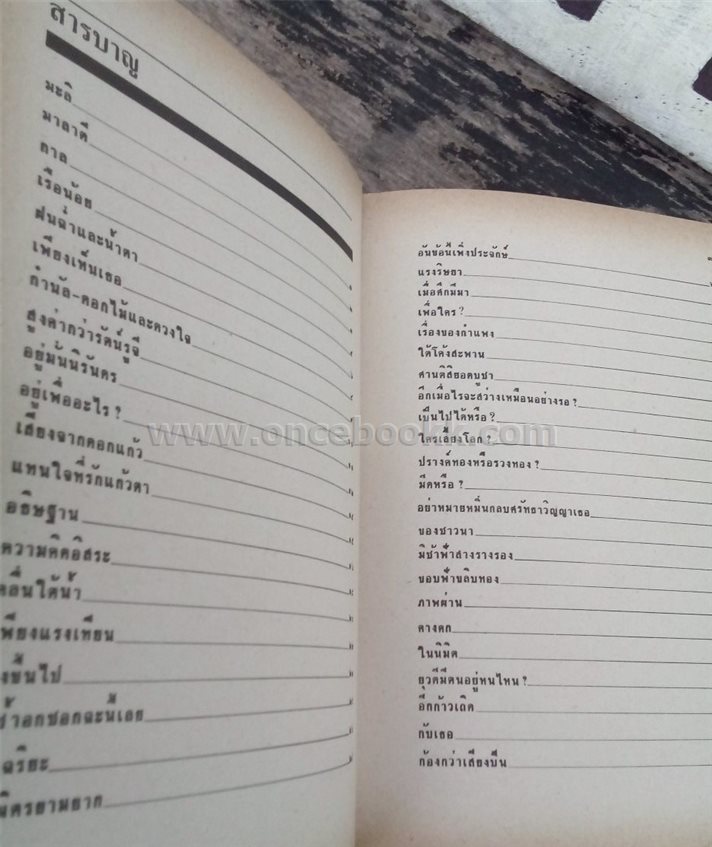 สารบาญ
มะลิ
มาลาตี
กาล
เรือน้อย
ฝนฉ่ำและน้ำตา
เพียงเห็นเธอ
กำนัล-ดอกไม้และดวงใจ
สูงค่ากว่ารัตน์รูจี
อยู่มั่นนิรันดร
อยู่เพื่ออะไร?
เสียงจากดอกแก้ว
แทนใจที่รักแก้วตา
อธิษฐาน
ความคิดอิสระ
คลื่นใต้น้ำ
เพียงแรงเทียน
อันข้อนี้เพิ่งประจักษ์
แรงริษยา
เมื่อศึกมีมา
เพื่อใคร?
เรื่องของกำแพง
ใต้โค้งสะพาน
ศานติสิยอดบูชา
อีกเมื่อไรจะสว่างเหมือนอย่างรอ?
เป็นไปได้หรือ?
ใครเอียงโลก?
ปรางค์ทองหรือรวงทอง?
มืดหรือ?
อย่าหมายหมิ่นกลบศรัทธาวิญญาเธอ
ของชาวนา
มิช้าฟ้าสางรางรอง
ขอบฟ้าขลิบทอง
ภาพผ่าน
คางคก
ในนิมิต
ยุวดีมีตนอยู่หนไหน?
อีกก้าวเถิด
กับเธอ
ก้องกว่าเสียงปืน
www.oncebookk.com